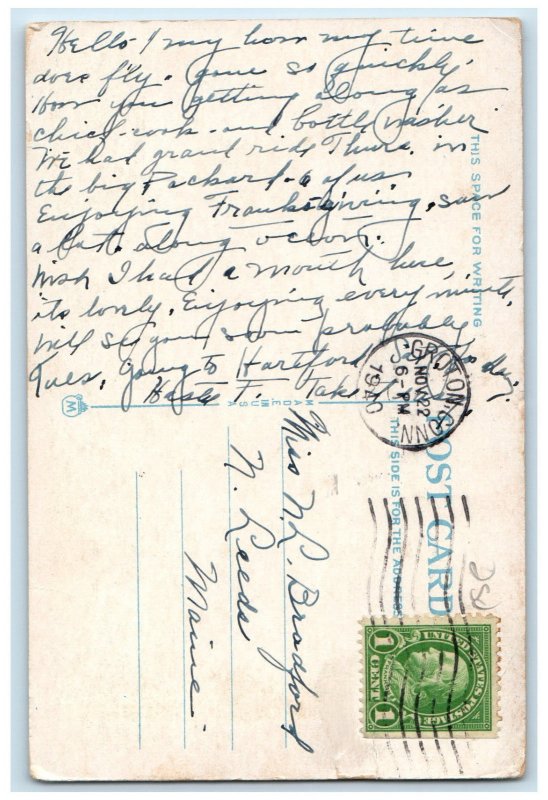 Hello - / my how my time
does fly. gone so quickly.
How you getting along as
chief-cook-and bottle washer
We had grand ride Thurs. in
the big Packard-6 of us
Enjoying Franksgiving, saw
a lot along ocean.
Wish I had a month here,
its lovely. Enjoying every minute,
will see you soon probably
Tues. going to Hartford today.
Haste F. Take
THIS SPACE FOR WRITING
MADE IN U.S.A.
M
GROTON, CONN
NOV 22
6-PM
1940
POST CARD
THIS SIDE IS FOR THE ADDRESS
UNITED STATES POSTAGE
1 CENT 1
Miss N. L. Bradford
N. Leeds
Maine